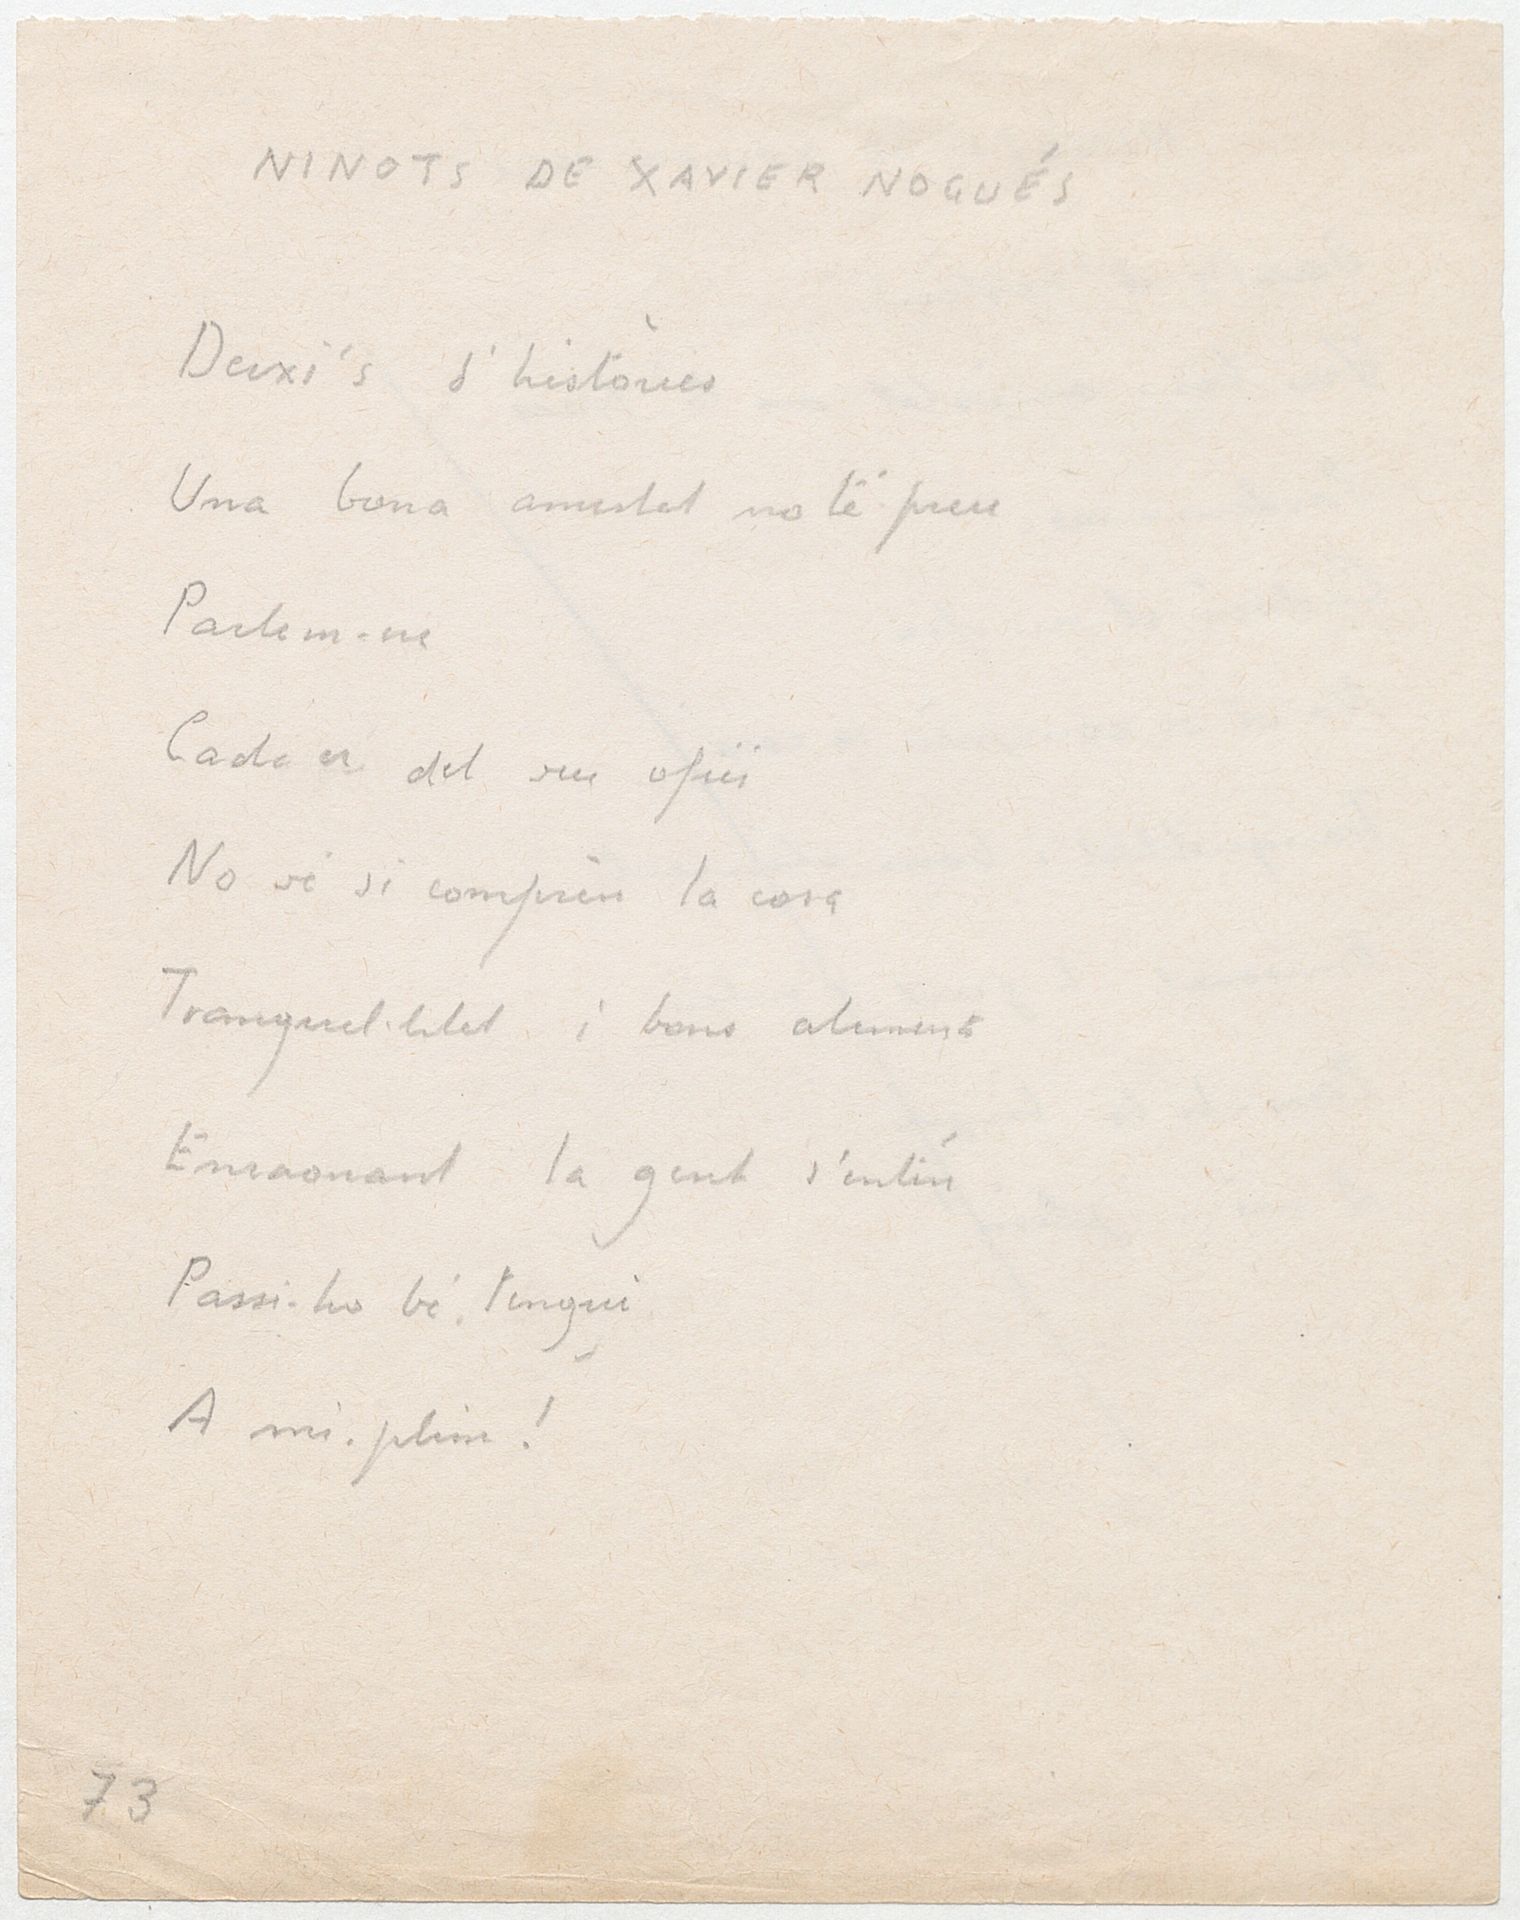 NINOTS DE XAVIER NOGUÉS
Deixi's d'històries
Una bona amistat no té preu
Parlem-ne
Cada u del seu ofici
No sé si comprèn la cosa
Tranquil·litat i bons aliments
Enraonant la gent s'entén
Passi-ho bé, tingui
A mi, plim!
73